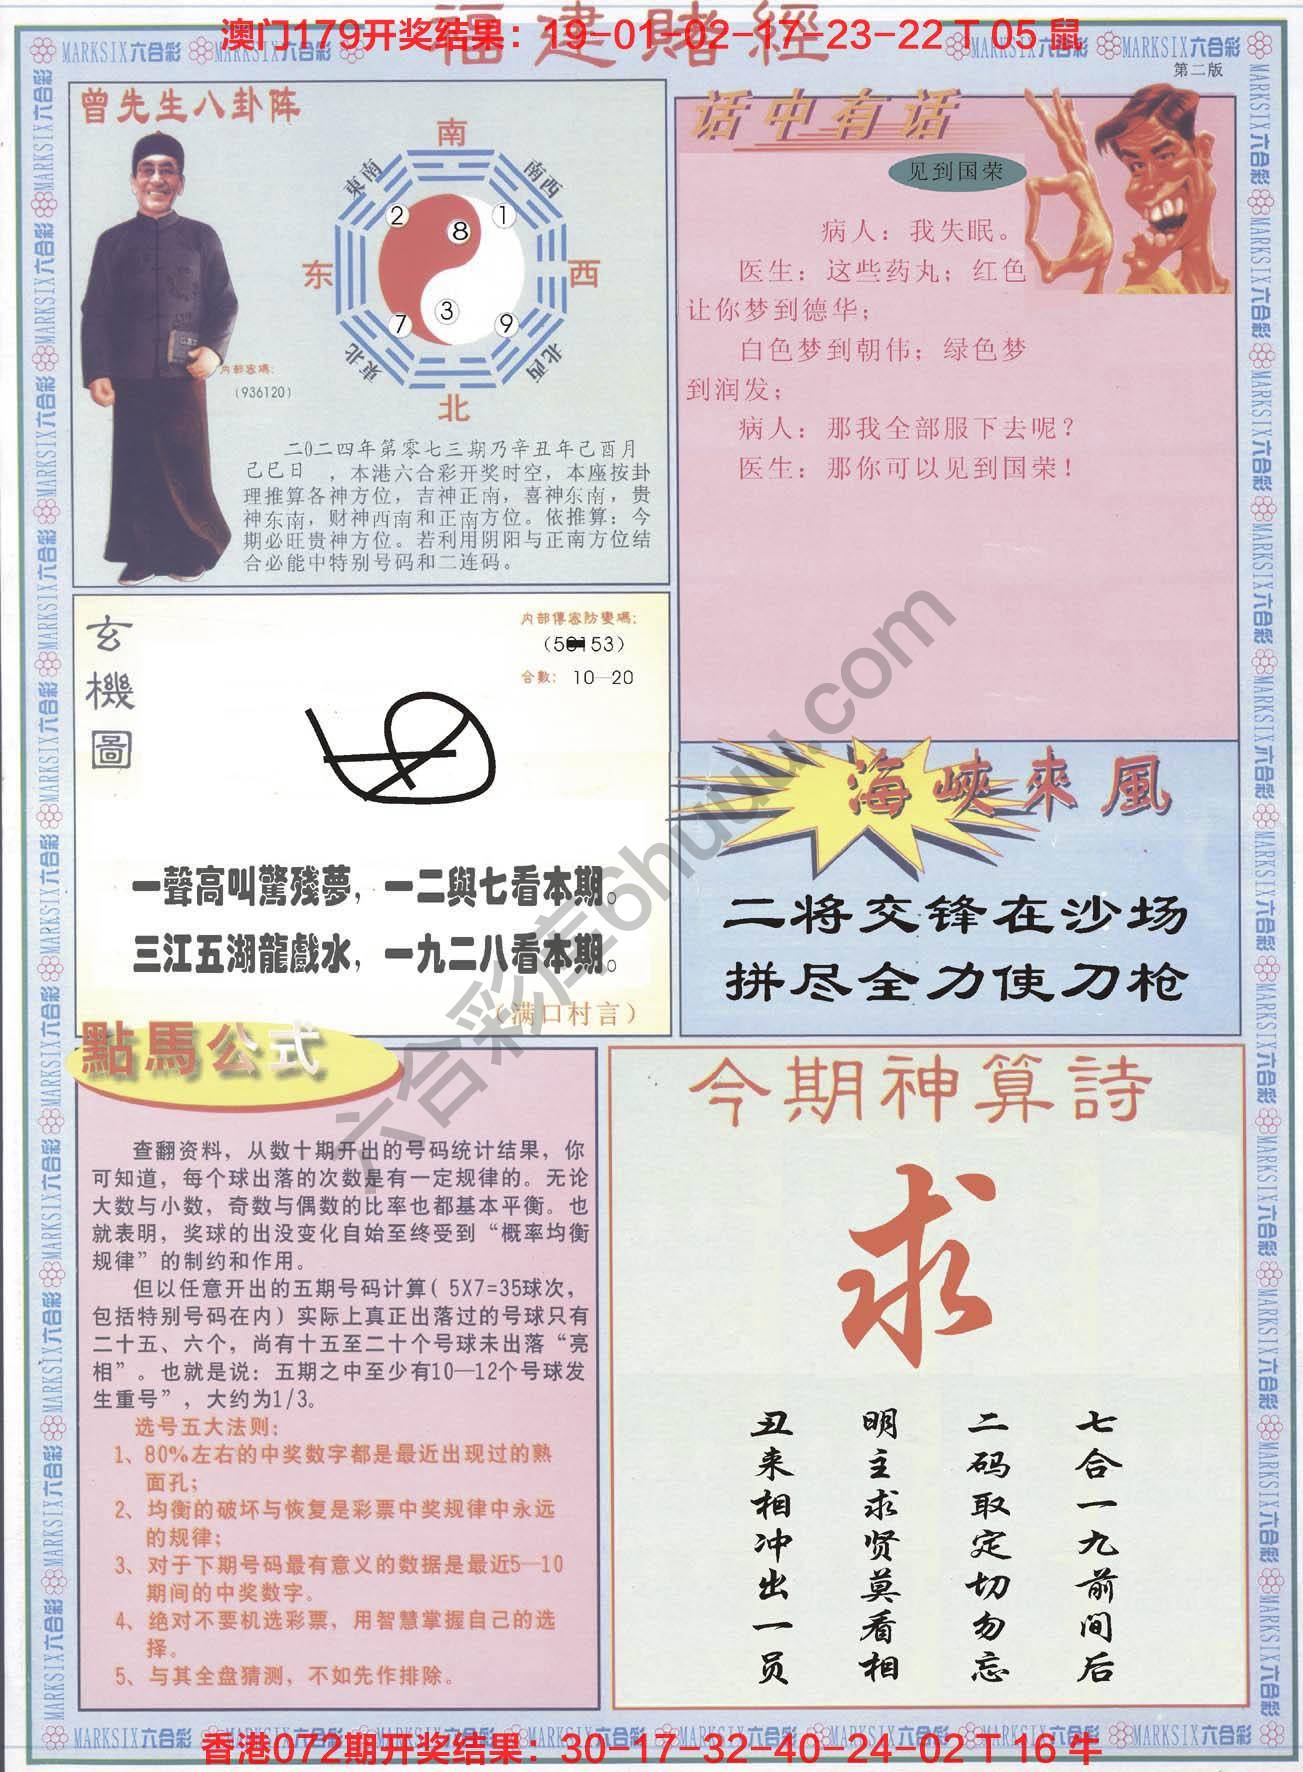 福建賭經
澳门179开奖结果：19-01-02-17-23-22 T 05 鼠
MARKSIX六合彩
第二版
曾先生八卦阵
南
東南
南西
2
1
8
东
西
3
7
9
東北
北西
北
内部密碼：
(936120)
二0二四年第零七三期乃辛丑年己酉月
己巳日 ，本港六合彩开奖时空，本座按卦
理推算各神方位，吉神正南，喜神东南，贵
神东南，财神西南和正南方位。依推算：今
期必旺贵神方位。若利用阴阳与正南方位结
合必能中特别号码和二连码。
话中有话
见到国荣
病人：我失眠。
医生：这些药丸；红色
让你梦到德华；
白色梦到朝伟；绿色梦
到润发；
病人：那我全部服下去呢？
医生：那你可以见到国荣！
玄機圖
内部傳密防變碼：
合數： 10—20
一聲高叫驚殘夢，一二與七看本期。
三江五湖龍戲水，一九二八看本期。
（满口村言）
海峽來風
二将交锋在沙场
拼尽全力使刀枪
點馬公式
查翻资料，从数十期开出的号码统计结果，你
可知道，每个球出落的次数是有一定规律的。无论
大数与小数，奇数与偶数的比率也都基本平衡。也
就表明，奖球的出没变化自始至终受到“概率均衡
规律”的制约和作用。
但以任意开出的五期号码计算( 5X7=35球次，
包括特别号码在内）实际上真正出落过的号球只有
二十五、六个，尚有十五至二十个号球未出落“亮
相”。也就是说：五期之中至少有10—12个号球发
生重号”，大约为1/3。
选号五大法则：
1、80%左右的中奖数字都是最近出现过的熟
面孔；
2、均衡的破坏与恢复是彩票中奖规律中永远
的规律；
3、对于下期号码最有意义的数据是最近5—10
期间的中奖数字。
4、绝对不要机选彩票，用智慧掌握自己的选
择。
5、与其全盘猜测，不如先作排除。
今期神算詩
求
七合一九前间后
二码取定切勿忘
明主求贤莫看相
丑来相冲出一员
六合彩库6huuu.com
香港072期开奖结果：30-17-32-40-24-02 T 16 牛